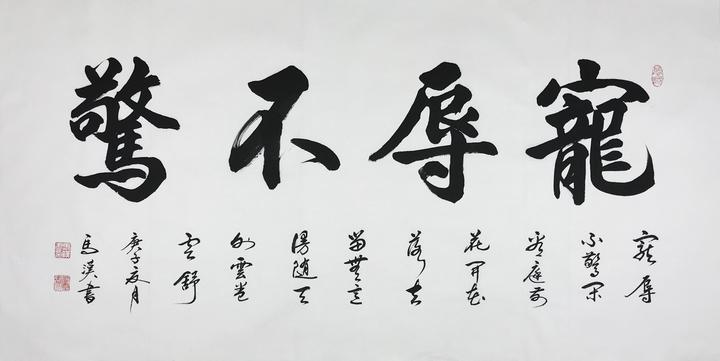 寵辱不驚
寵辱
不驚閑
看庭前
花開花
落去
留無意
漫随天
外雲卷
雲舒
庚子夏月
馬書